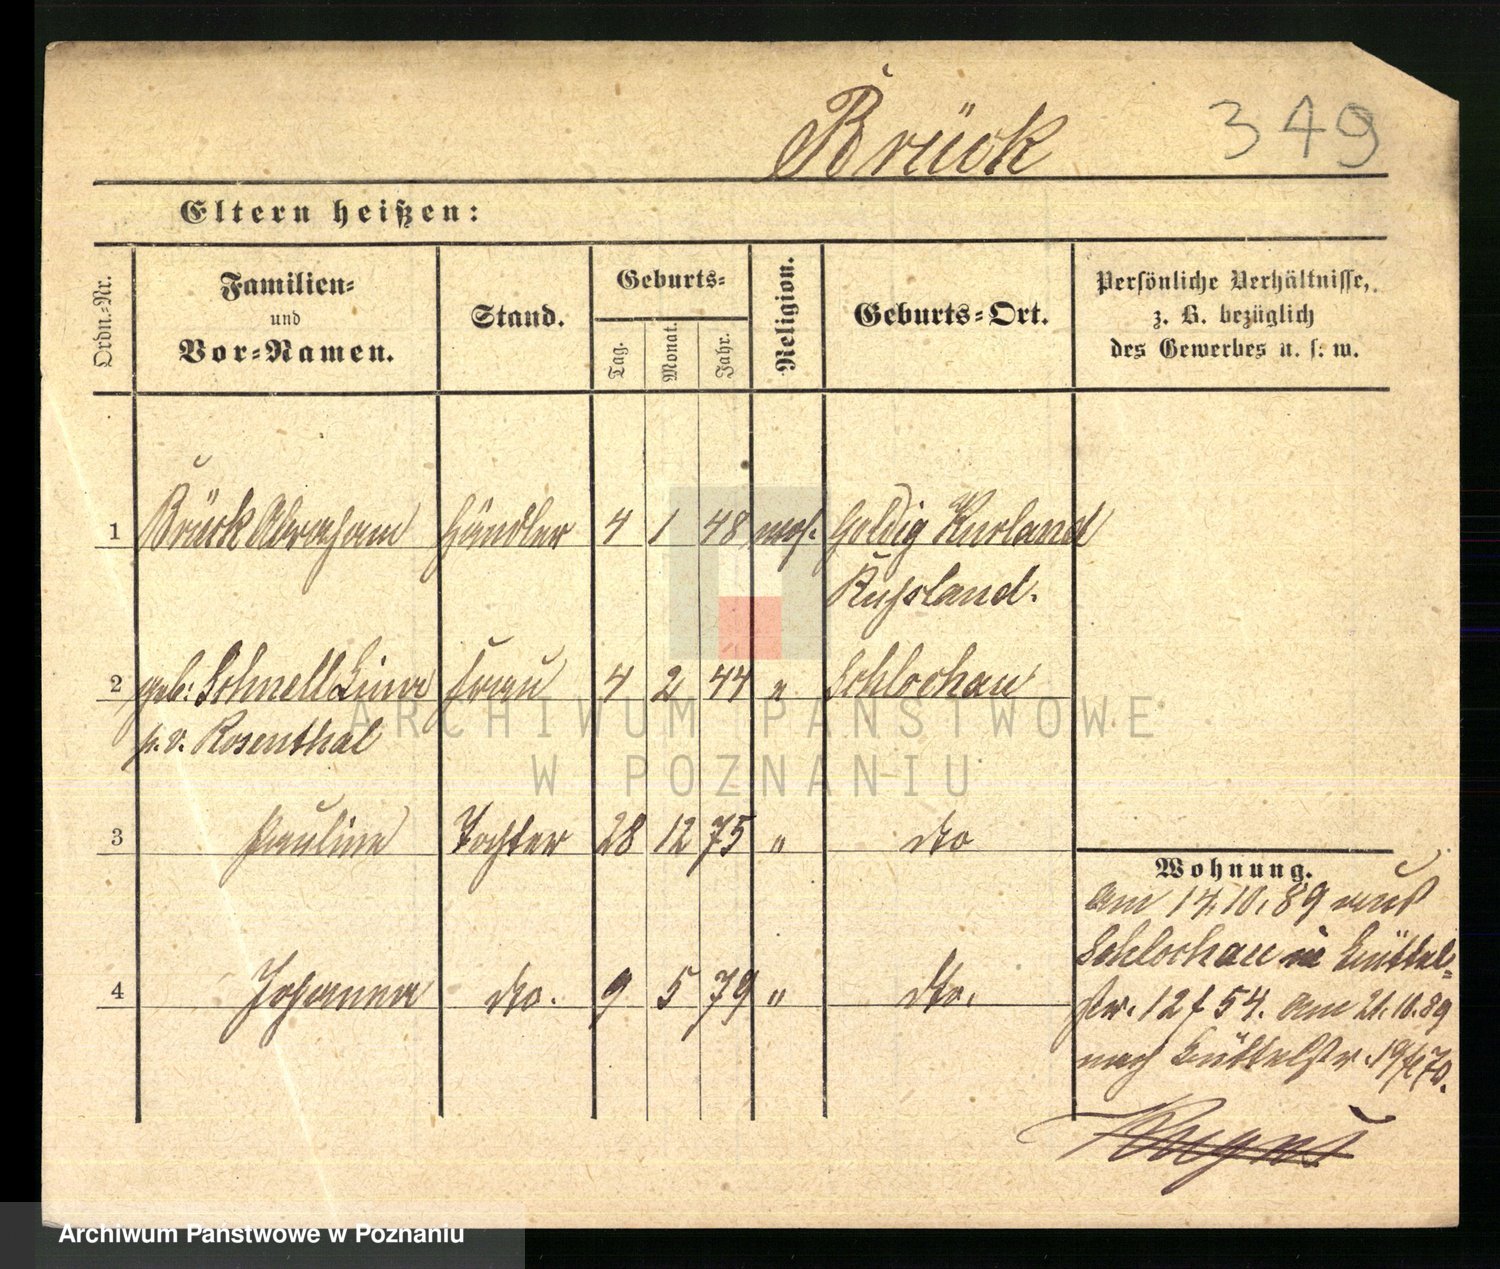 Brück 349
Eltern heißen:
Ordn.-Nr.
Familien-
und
Vor-Namen.
Stand.
Geburts-
Tag.
Monat.
Jahr.
Religion.
Geburts-Ort.
Persönliche Verhältnisse,
z. B. bezüglich
des Gewerbes u. s. w.
1 Brück Abraham Händler 4 1 48 mos. Goldig Kurland
Russland.
2 geb: Schnell Lina Frau 4 2 44 " Schlochau
p. v. Rosenthal
3 Pauline Tochter 28 12 75 " dto
4 Johanna dto. 9 5 79 " dto.
Wohnung.
Am 14.10.89 aus
Schlochau in Büttel-
str. 12 f 54. Am 21.10.89
nach Büttelstr. 19
ARCHIWUM PAŃSTWOWE
W POZNANIU
Archiwum Państwowe w Poznaniu